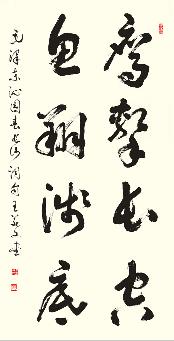 鹰击长空
鱼翔浅底
毛泽东沁园春长沙词句王